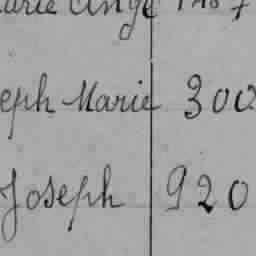 Marie Ange
eph Marie 300
Joseph 920